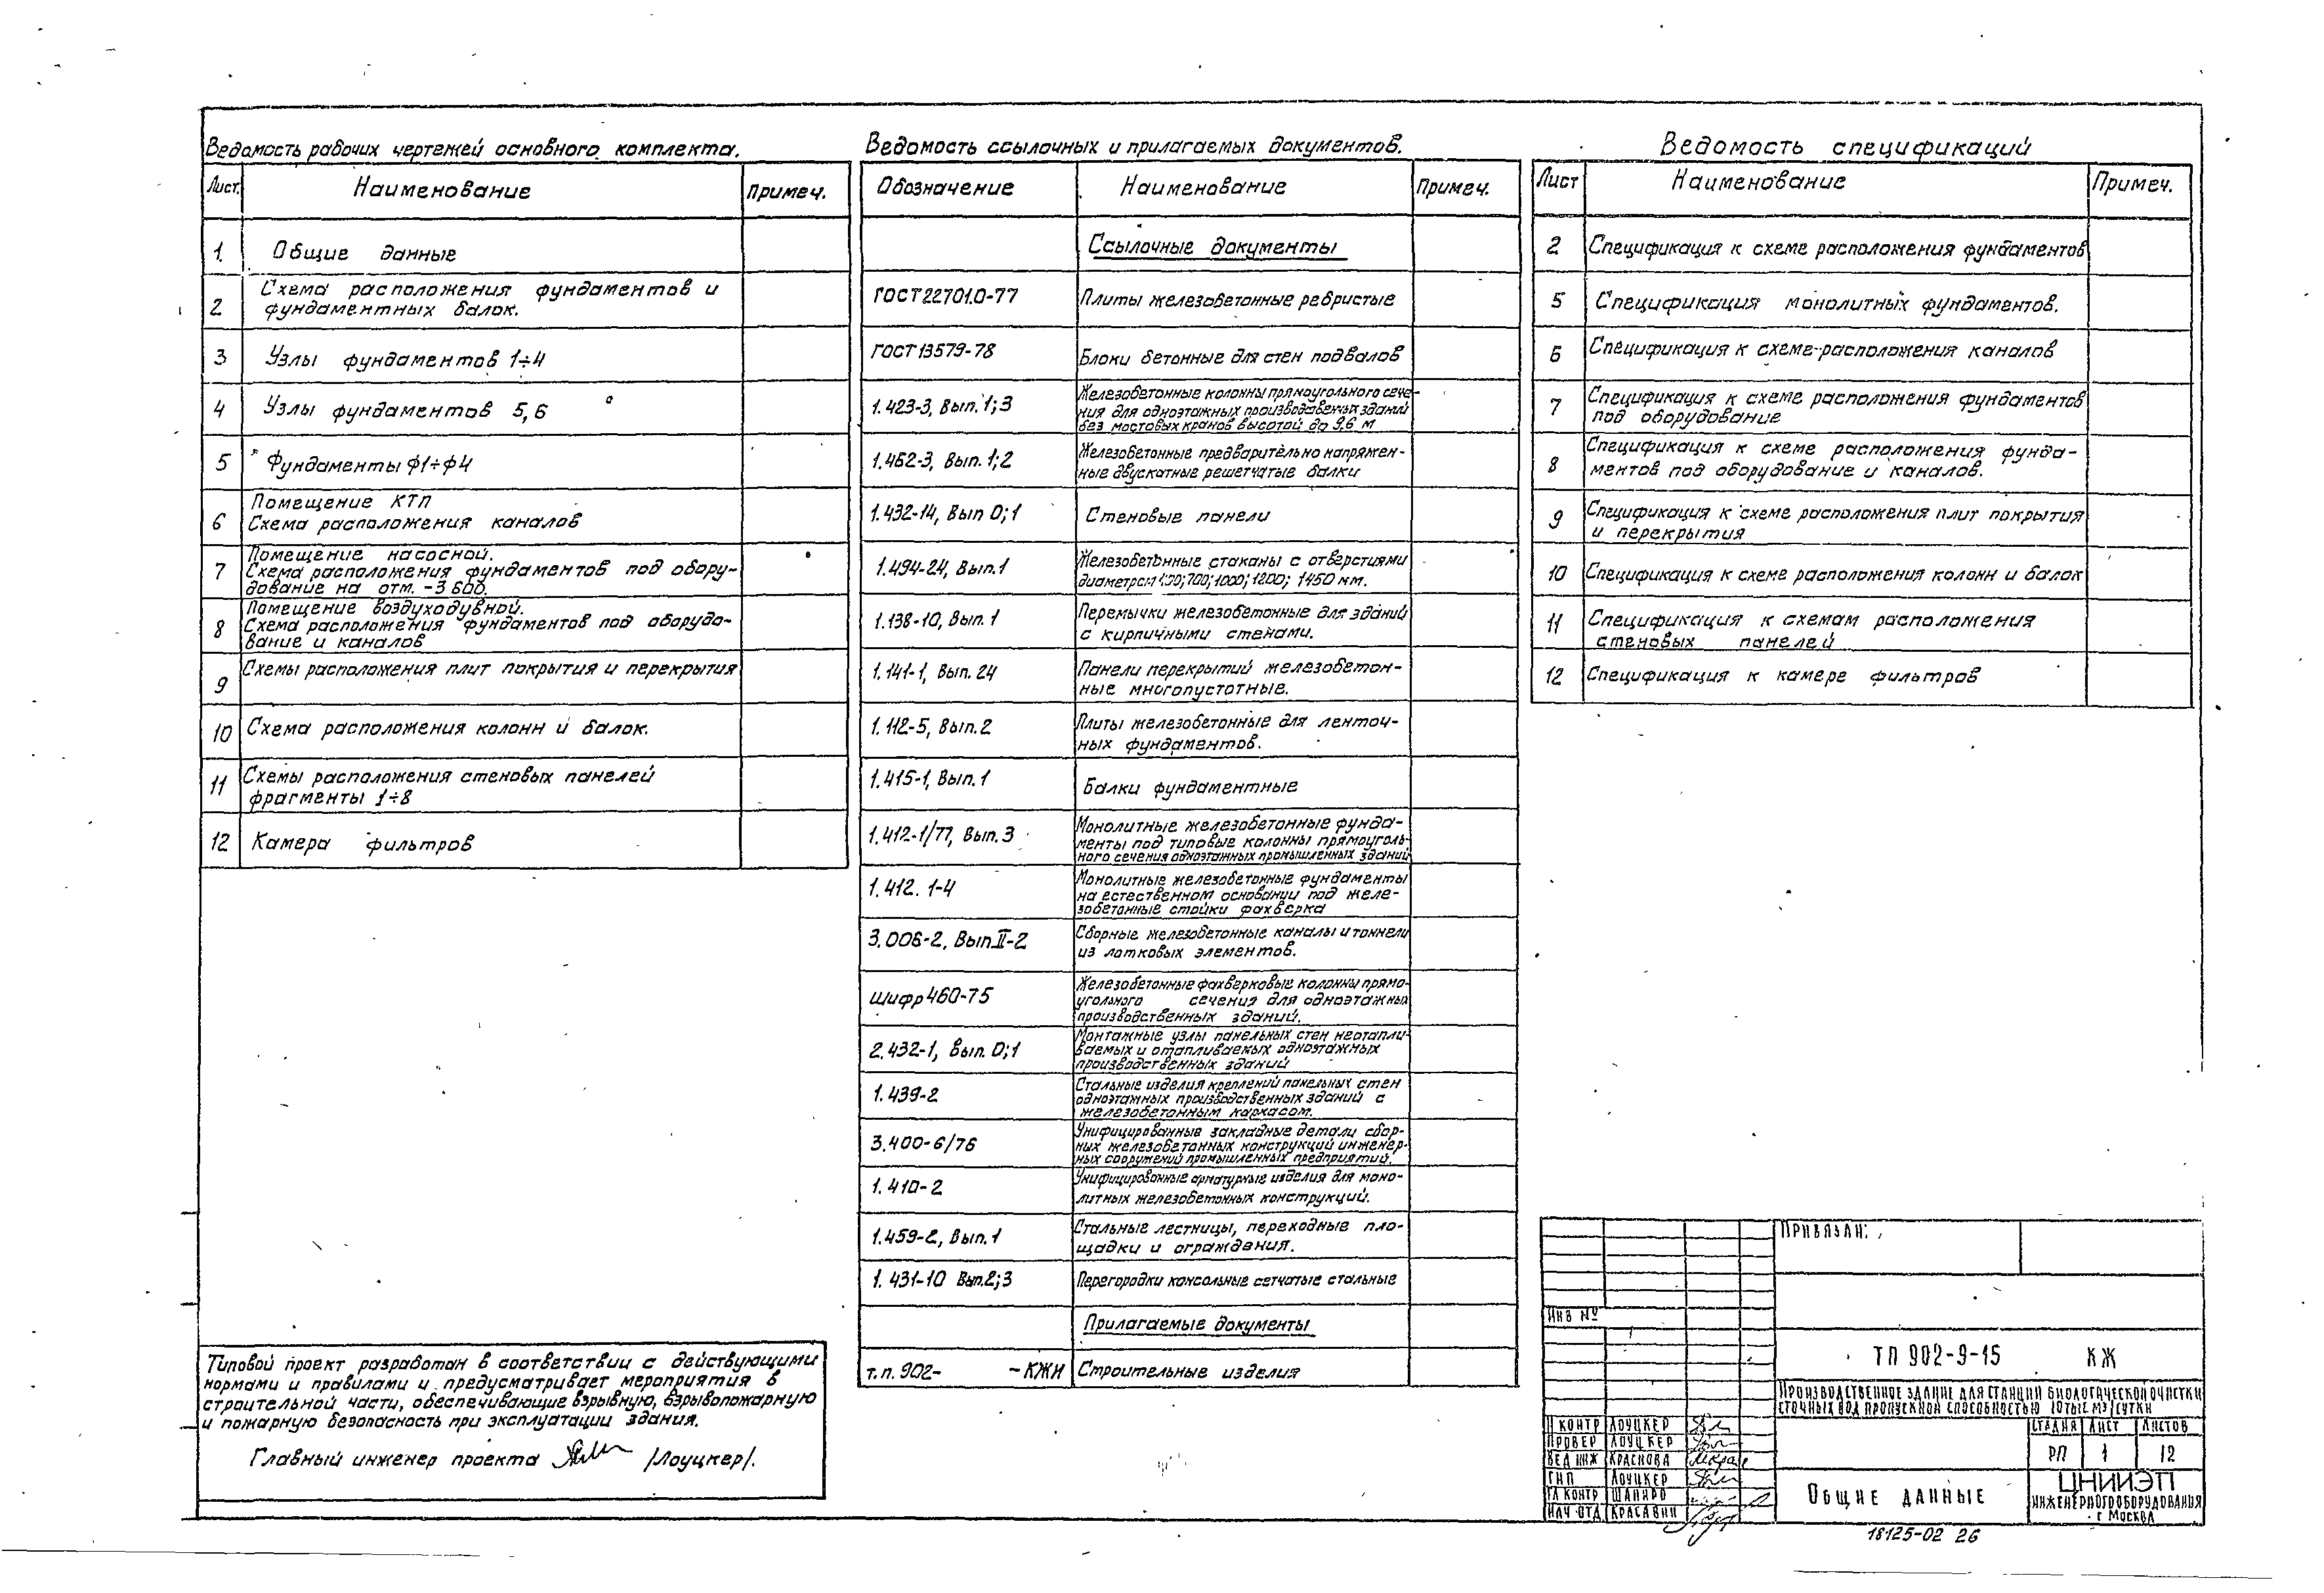 Ведомость рабочих чертежей основного комплекта.
Лист. Наименование Примеч.
1. Общие данные
2 Схема расположения фундаментов и
фундаментных балок.
3 Узлы фундаментов 1÷4
4 Узлы фундаментов 5,6
5 Фундаменты ф1÷ф4
6 Помещение КТП
Схема расположения каналов
7 Помещение насосной.
Схема расположения фундаментов под обору-
дование на отм. -3.600.
8 Помещение воздуходувной.
Схема расположения фундаментов под оборудо-
вание и каналов
9 Схемы расположения плит покрытия и перекрытия
10 Схема расположения колонн и балок.
11 Схемы расположения стеновых панелей
фрагменты 1÷8
12 Камера фильтров
Ведомость ссылочных и прилагаемых документов.
Обозначение Наименование Примеч.
Ссылочные документы
ГОСТ 22701.0-77 Плиты железобетонные ребристые
ГОСТ 13579-78 Блоки бетонные для стен подвалов
1.423-3, Вып. 1;3 Железобетонные колонны прямоугольного сече-
ния для одноэтажных производственных зданий
без мостовых кранов высотой до 9,6 м
1.462-3, Вып. 1;2 Железобетонные предварительно напряжен-
ные двускатные решетчатые балки
1.432-14, Вып 0;1 Стеновые панели
1.494-24, Вып.1 Железобетонные стаканы с отверстиями
диаметром 700; 1000; 1200; 1450 мм.
1.138-10, Вып. 1 Перемычки железобетонные для зданий
с кирпичными стенами.
1.141-1, Вып. 24 Панели перекрытий железобетон-
ные многопустотные.
1.112-5, Вып.2 Плиты железобетонные для ленточ-
ных фундаментов.
1.415-1, Вып.1 Балки фундаментные
1.412-1/77, Вып.3 Монолитные железобетонные фунда-
менты под типовые колонны прямоуголь-
ного сечения одноэтажных промышленных зданий
1.412.1-4 Монолитные железобетонные фундаменты
на естественном основании под желе-
зобетонные стойки фахверка
3.006-2, Вып II-2 Сборные железобетонные каналы и тоннели
из лотковых элементов.
Шифр 460-75 Железобетонные фахверковые колонны прямо-
угольного сечения для одноэтажных
производственных зданий.
2.432-1, Вып. 0;1 Монтажные узлы панельных стен неотапли-
ваемых и отапливаемых одноэтажных
производственных зданий
1.439-2 Стальные изделия креплений панельных стен
одноэтажных производственных зданий с
железобетонным каркасом.
3.400-6/76 Унифицированные закладные детали сбор-
ных железобетонных конструкций инженер-
ных сооружений промышленных предприятий.
1.410-2 Унифицированные арматурные изделия для моно-
литных железобетонных конструкций.
1.459-2, Вып.1 Стальные лестницы, переходные пло-
щадки и ограждения.
1.431-10 Вып.2;3 Перегородки консольные сетчатые стальные
Прилагаемые документы
т.п. 902- -КЖИ Строительные изделия
Ведомость спецификаций
Лист Наименование Примеч.
2 Спецификация к схеме расположения фундаментов
5 Спецификация монолитных фундаментов.
6 Спецификация к схеме расположения каналов
7 Спецификация к схеме расположения фундаментов
под оборудование
8 Спецификация к схеме расположения фунда-
ментов под оборудование и каналов.
9 Спецификация к схеме расположения плит покрытия
и перекрытия
10 Спецификация к схеме расположения колонн и балок
11 Спецификация к схемам расположения
стеновых панелей
12 Спецификация к камере фильтров
Типовой проект разработан в соответствии с действующими
нормами и правилами и предусматривает мероприятия в
строительной части, обеспечивающие взрывную, взрывопожарную
и пожарную безопасность при эксплуатации здания.
Главный инженер проекта /Лоуцкер/.
Привязан:
Инв №
ТП 902-9-15 КЖ
Производственное здание для станции биологической очистки
сточных вод пропускной способностью 10 тыс м3/сутки
Н контр Лоуцкер
Провер Лоуцкер
Вед инж Краснова
ГИП Лоуцкер
Гл контр Шапиро
Нач отд Красавин
Стадия Лист Листов
РП 1 12
Общие данные
ЦНИИЭП
инженерного оборудования
г Москва
18125-02 26